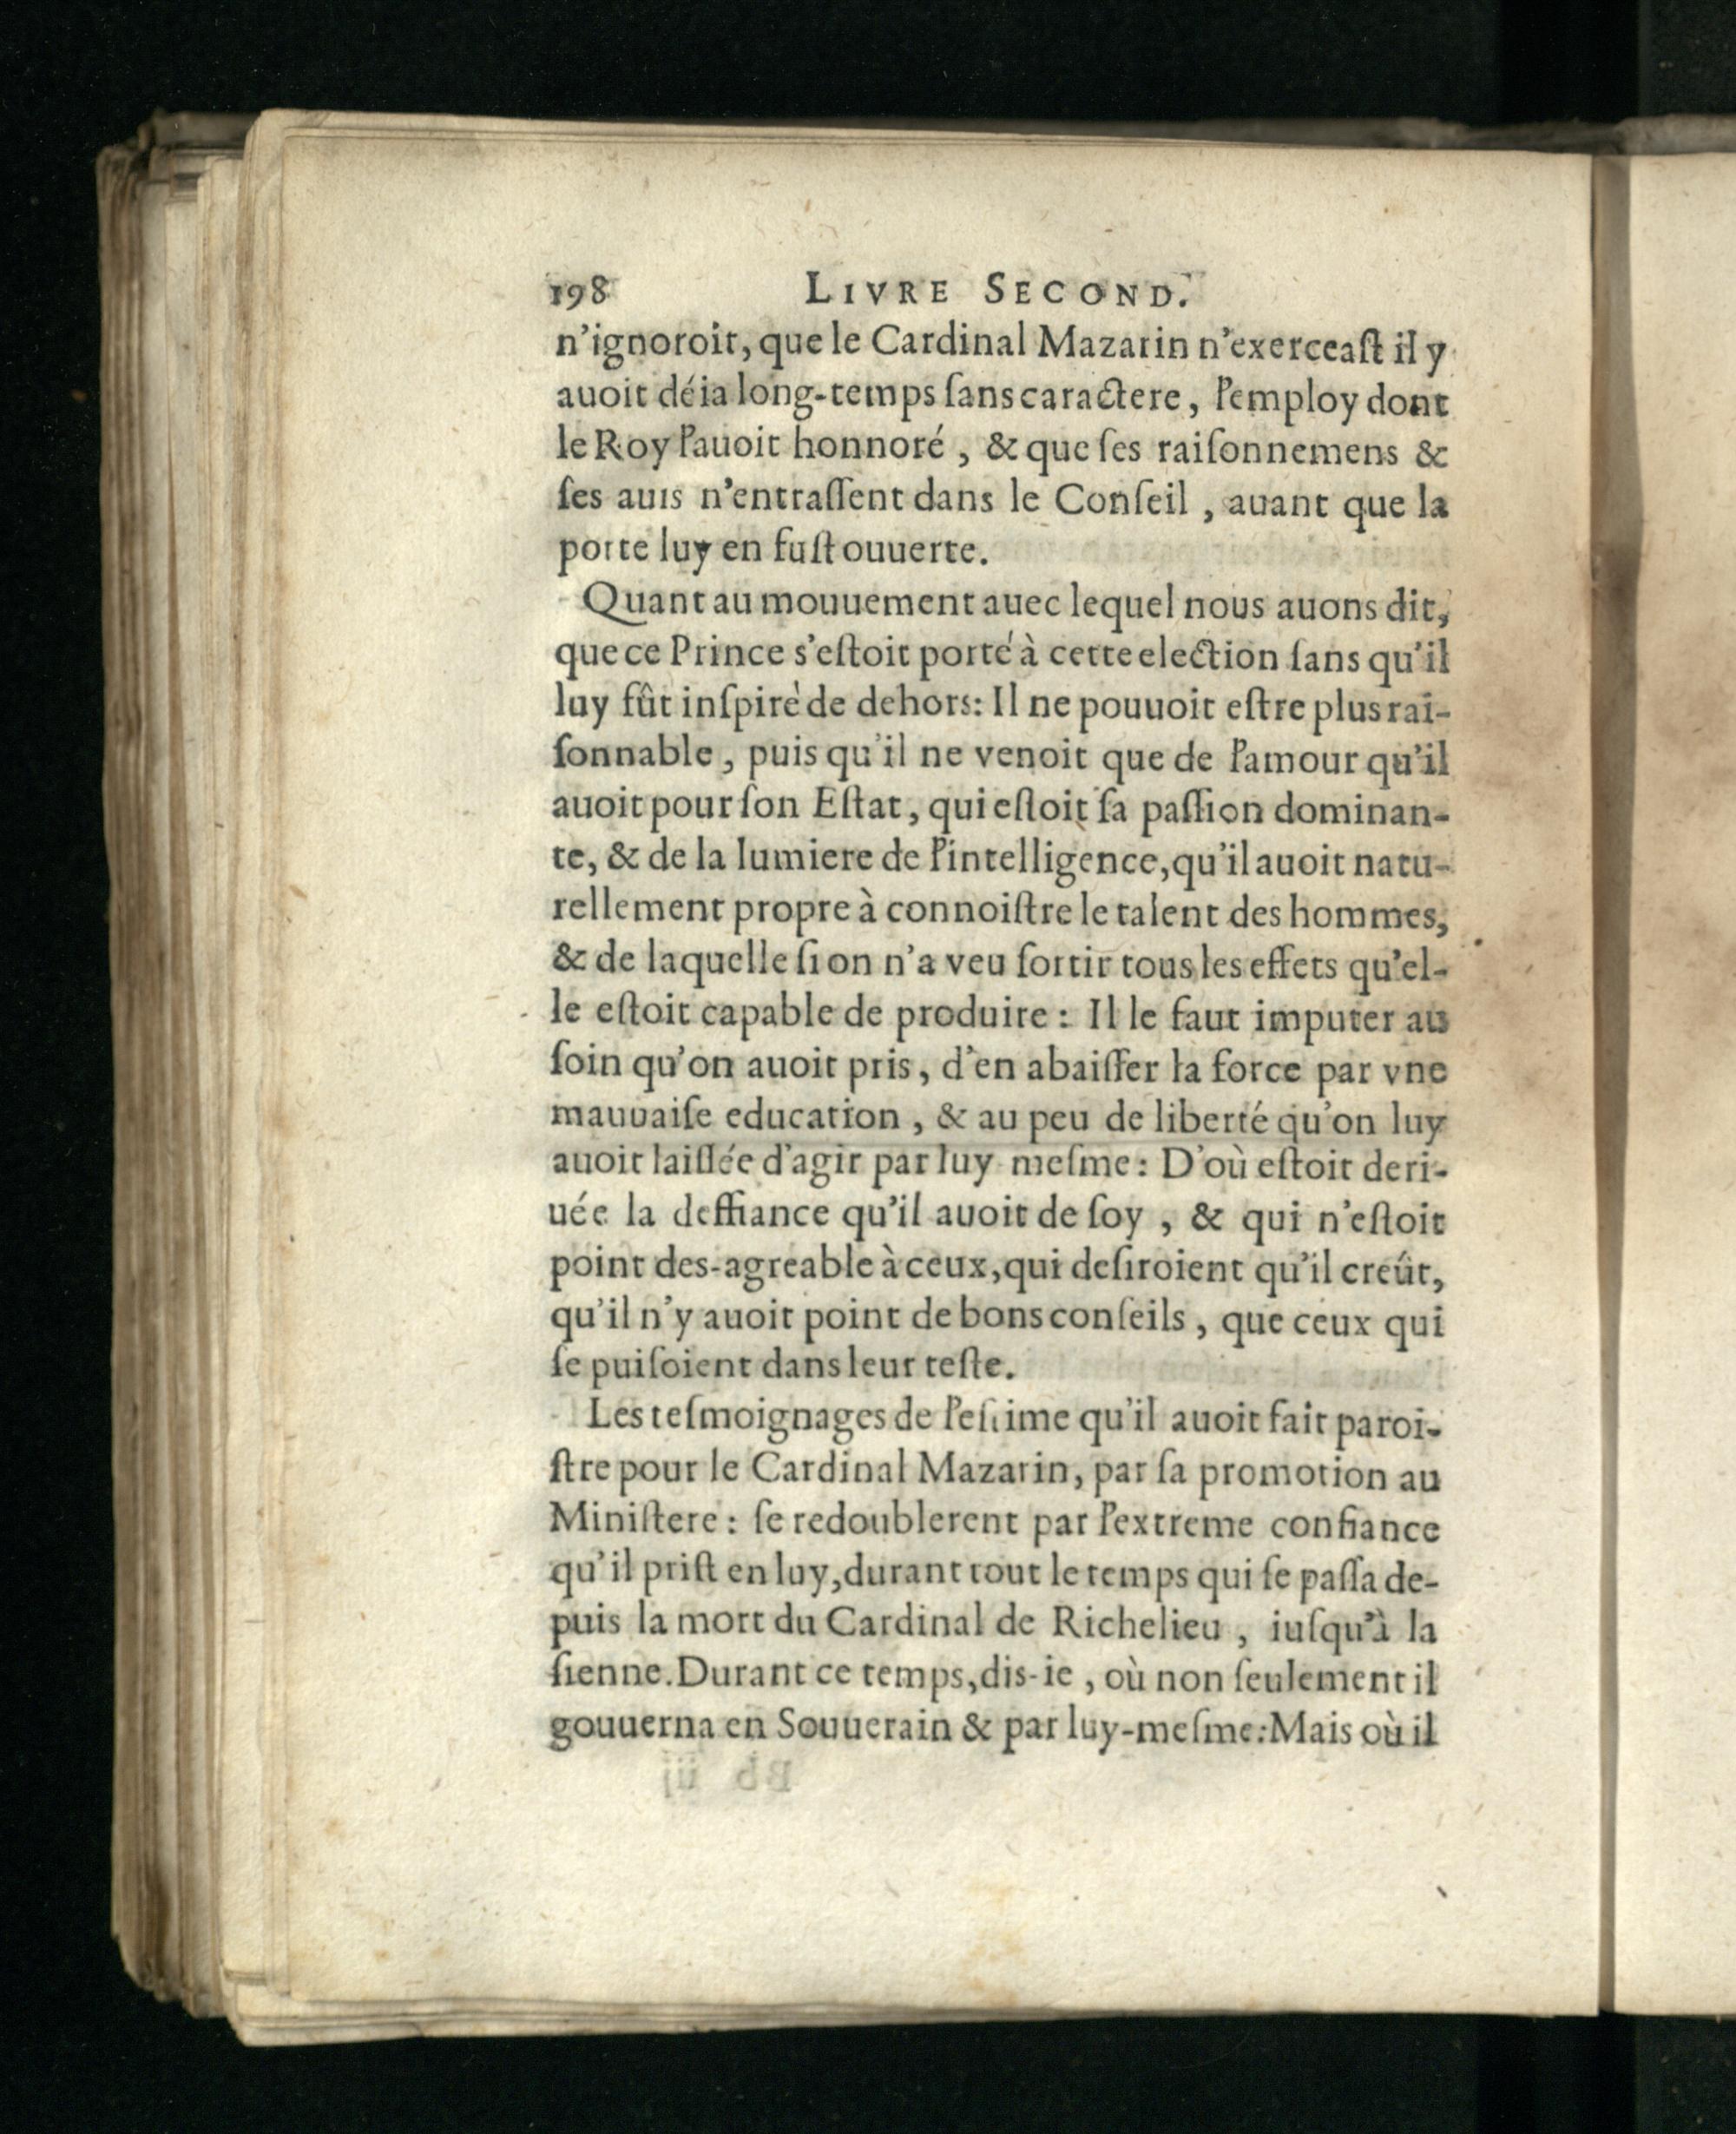 198 LIVRE SECOND.
n'ignoroit, que le Cardinal Mazarin n'exerceaſt il y
auoit déia long-temps ſans caractere, l'employ dont
le Roy l'auoit honnoré, & que ſes raiſonnemens &
ſes auis n'entraſſent dans le Conſeil, auant que la
porte luy en fuſt ouuerte.
Quant au mouuement auec lequel nous auons dit,
que ce Prince s'eſtoit porté à cette election ſans qu'il
luy fût inſpirè de dehors: Il ne pouuoit eſtre plus rai-
ſonnable, puis qu'il ne venoit que de l'amour qu'il
auoit pour ſon Eſtat, qui eſtoit ſa paſſion dominan-
te, & de la lumiere de l'intelligence, qu'il auoit natu-
rellement propre à connoiſtre le talent des hommes,
& de laquelle ſi on n'a veu ſortir tous les effets qu'el-
le eſtoit capable de produire: Il le faut imputer au
ſoin qu'on auoit pris, d'en abaiſſer la force par vne
mauuaiſe education, & au peu de liberté qu'on luy
auoit laiſſée d'agir par luy meſme: D'où eſtoit deri-
uée la deffiance qu'il auoit de ſoy, & qui n'eſtoit
point des-agreable à ceux, qui deſiroient qu'il creût,
qu'il n'y auoit point de bons conſeils, que ceux qui
ſe puiſoient dans leur teſte.
Les teſmoignages de l'eſtime qu'il auoit fait paroi-
ſtre pour le Cardinal Mazarin, par ſa promotion au
Miniſtere: ſe redoublerent par l'extreme confiance
qu'il priſt en luy, durant tout le temps qui ſe paſſa de-
puis la mort du Cardinal de Richelieu, iuſqu'à la
ſienne. Durant ce temps, dis-ie, où non ſeulement il
gouuerna en Souuerain & par luy-meſme: Mais où il